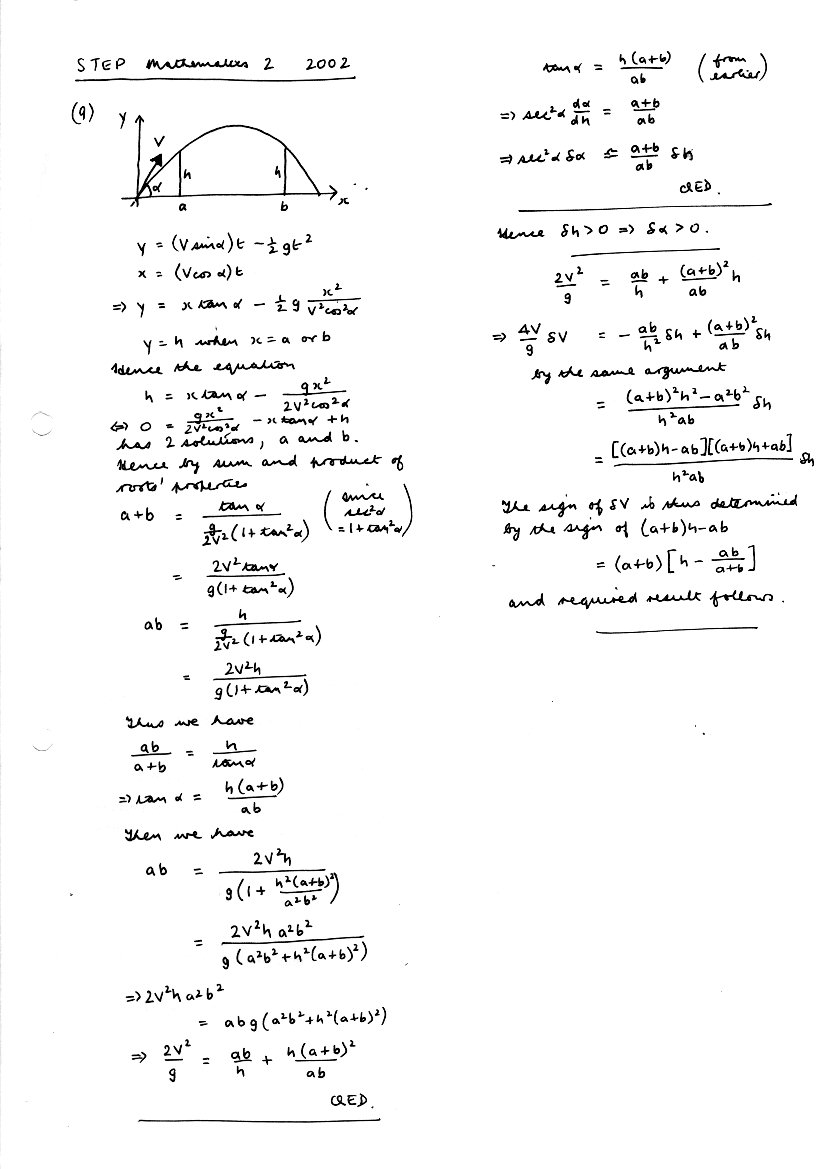 STEP Mathematics 2 2002
(9)
y
V
α
h
h
a
b
x
y = (V sinα)t - ½gt²
x = (V cos α)t
=> y = x tan α - ½ g x²/(V²cos²α)
y = h when x = a or b
Hence the equation
h = x tan α - gx²/(2V²cos²α)
⇔ 0 = gx²/(2V²cos²α) - x tan α + h
has 2 solutions, a and b.
Hence by sum and product of
roots' properties
a+b = tan α / (g/2V² (1+tan²α)) (since sec²α = 1+tan²α)
= 2V²tanα / (g(1+tan²α))
ab = h / (g/2V² (1+tan²α))
= 2V²h / (g(1+tan²α))
Thus we have
ab/(a+b) = h/tanα
=> tan α = h(a+b)/ab
Then we have
ab = 2V²h / (g(1 + h²(a+b)²/a²b²))
= 2V²h a²b² / (g(a²b²+h²(a+b)²))
=> 2V²h a²b²
= abg(a²b²+h²(a+b)²)
=> 2V²/g = ab/h + h(a+b)²/ab
QED.
tanα = h(a+b)/ab (from earlier)
=> sec²α dα/dh = (a+b)/ab
=> sec²α δα ≏ (a+b)/ab δh
QED.
Hence δh>0 => δα>0.
2V²/g = ab/h + (a+b)²/ab h
=> 4V/g δV = - ab/h² δh + (a+b)²/ab δh
by the same argument
= ((a+b)²h² - a²b²)/h²ab δh
= [(a+b)h-ab][(a+b)h+ab]/h²ab δh
The sign of δV is thus determined
by the sign of (a+b)h-ab
= (a+b)[h - ab/(a+b)]
and required result follows.